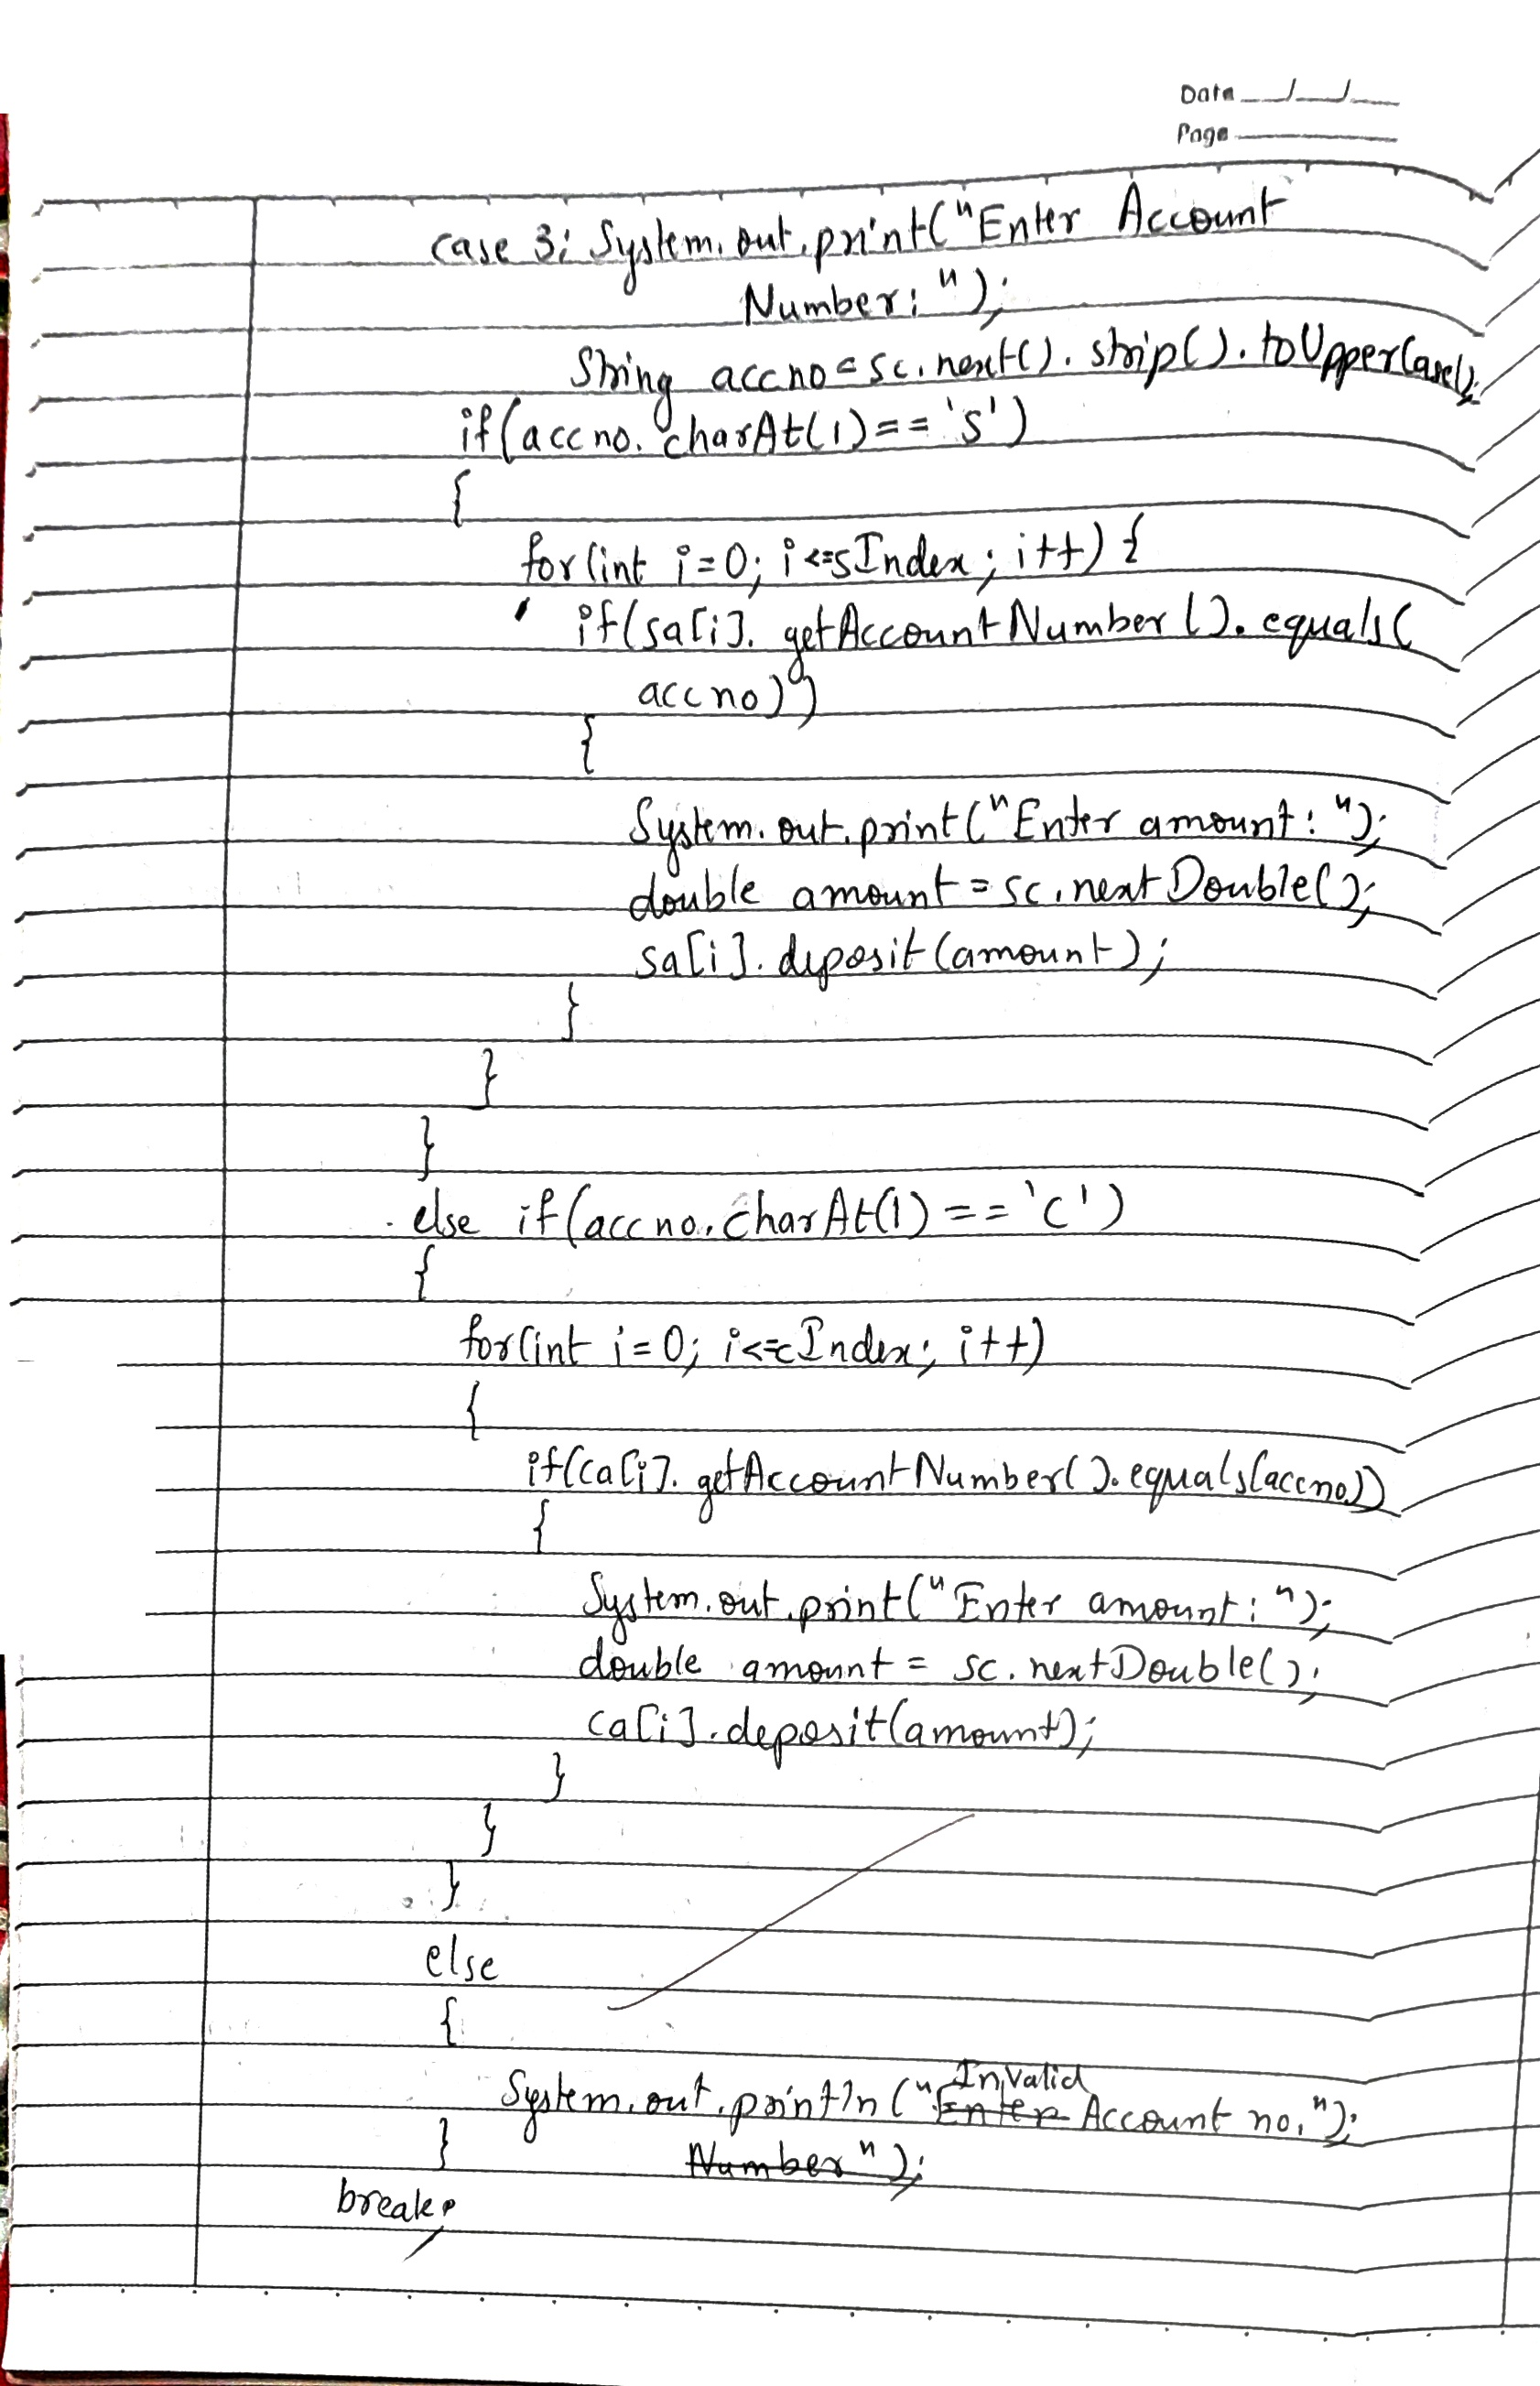 Date __/__/__
Page
case 3: System.out.print("Enter Account
Number: ");
String accno = sc.next().strip().toUpperCase();
if(accno.charAt(1)=='S')
{
for(int i=0; i<=sIndex; i++) {
if(sa[i].getAccountNumber().equals(
accno))
{
System.out.print("Enter amount: ");
double amount = sc.nextDouble();
sa[i].deposit(amount);
}
}
}
else if(accno.charAt(1)=='C')
{
for(int i=0; i<=cIndex; i++)
{
if(ca[i].getAccountNumber().equals(accno))
{
System.out.print("Enter amount: ");
double amount = sc.nextDouble();
ca[i].deposit(amount);
}
}
}
else
{
System.out.println("Enter Invalid Account no.");
} Number");
break;